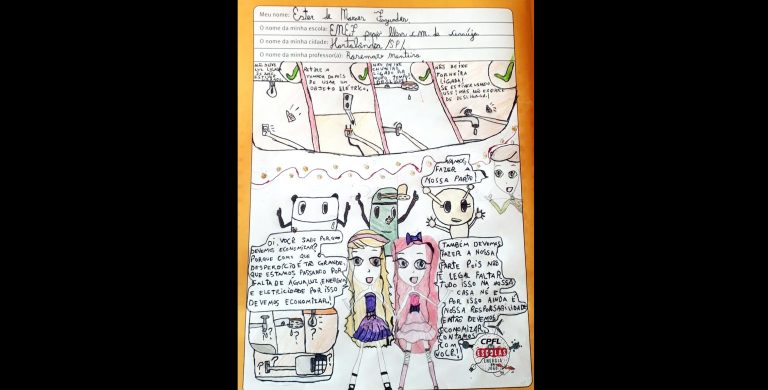 Meu nome: Ester de Moraes Fagundes
O nome da minha escola: EMEF
O nome da minha cidade: Hortolândia /SP
O nome da minha professor(a): Rosemare Monteiro
RETIRE A
TOMADA DEPOIS
DE USAR UM
OBJETO ELÉTRICO.
NÃO DEIXE
NÃO DEIXE
TORNEIRA
LIGADA!
SE ESTIVER USANDO
USE! MAS NÃO
DE DESLIGAR!
VAMOS,
FAZER A
NOSSA PARTE
OI, VOCÊ SABE POR QUE
DEVEMOS ECONOMIZAR?
PORQUE COM QUE O
DESPERDÍCIO É TÃO GRANDE,
QUE ESTAMOS PASSANDO POR
FALTA DE AGUA, LUZ, ENERGIA
E ELETRICIDADE POR ISSO
DEVEMOS ECONOMIZAR!
TAMBÉM DEVEMOS
FAZER A NOSSA
PARTE POIS NÃO
É LEGAL FALTAR
TUDO ISSO NA NOSSA
CASA NÉ E
POR ISSO AINDA É
NOSSA RESPONSABILIDADE
ENTÃO DEVEMOS
ECONOMIZAR
CONTAMOS
COM
VOCÊ!
? ?
? ?
CPFL
NAS
ESCOLAS
ENERGIA